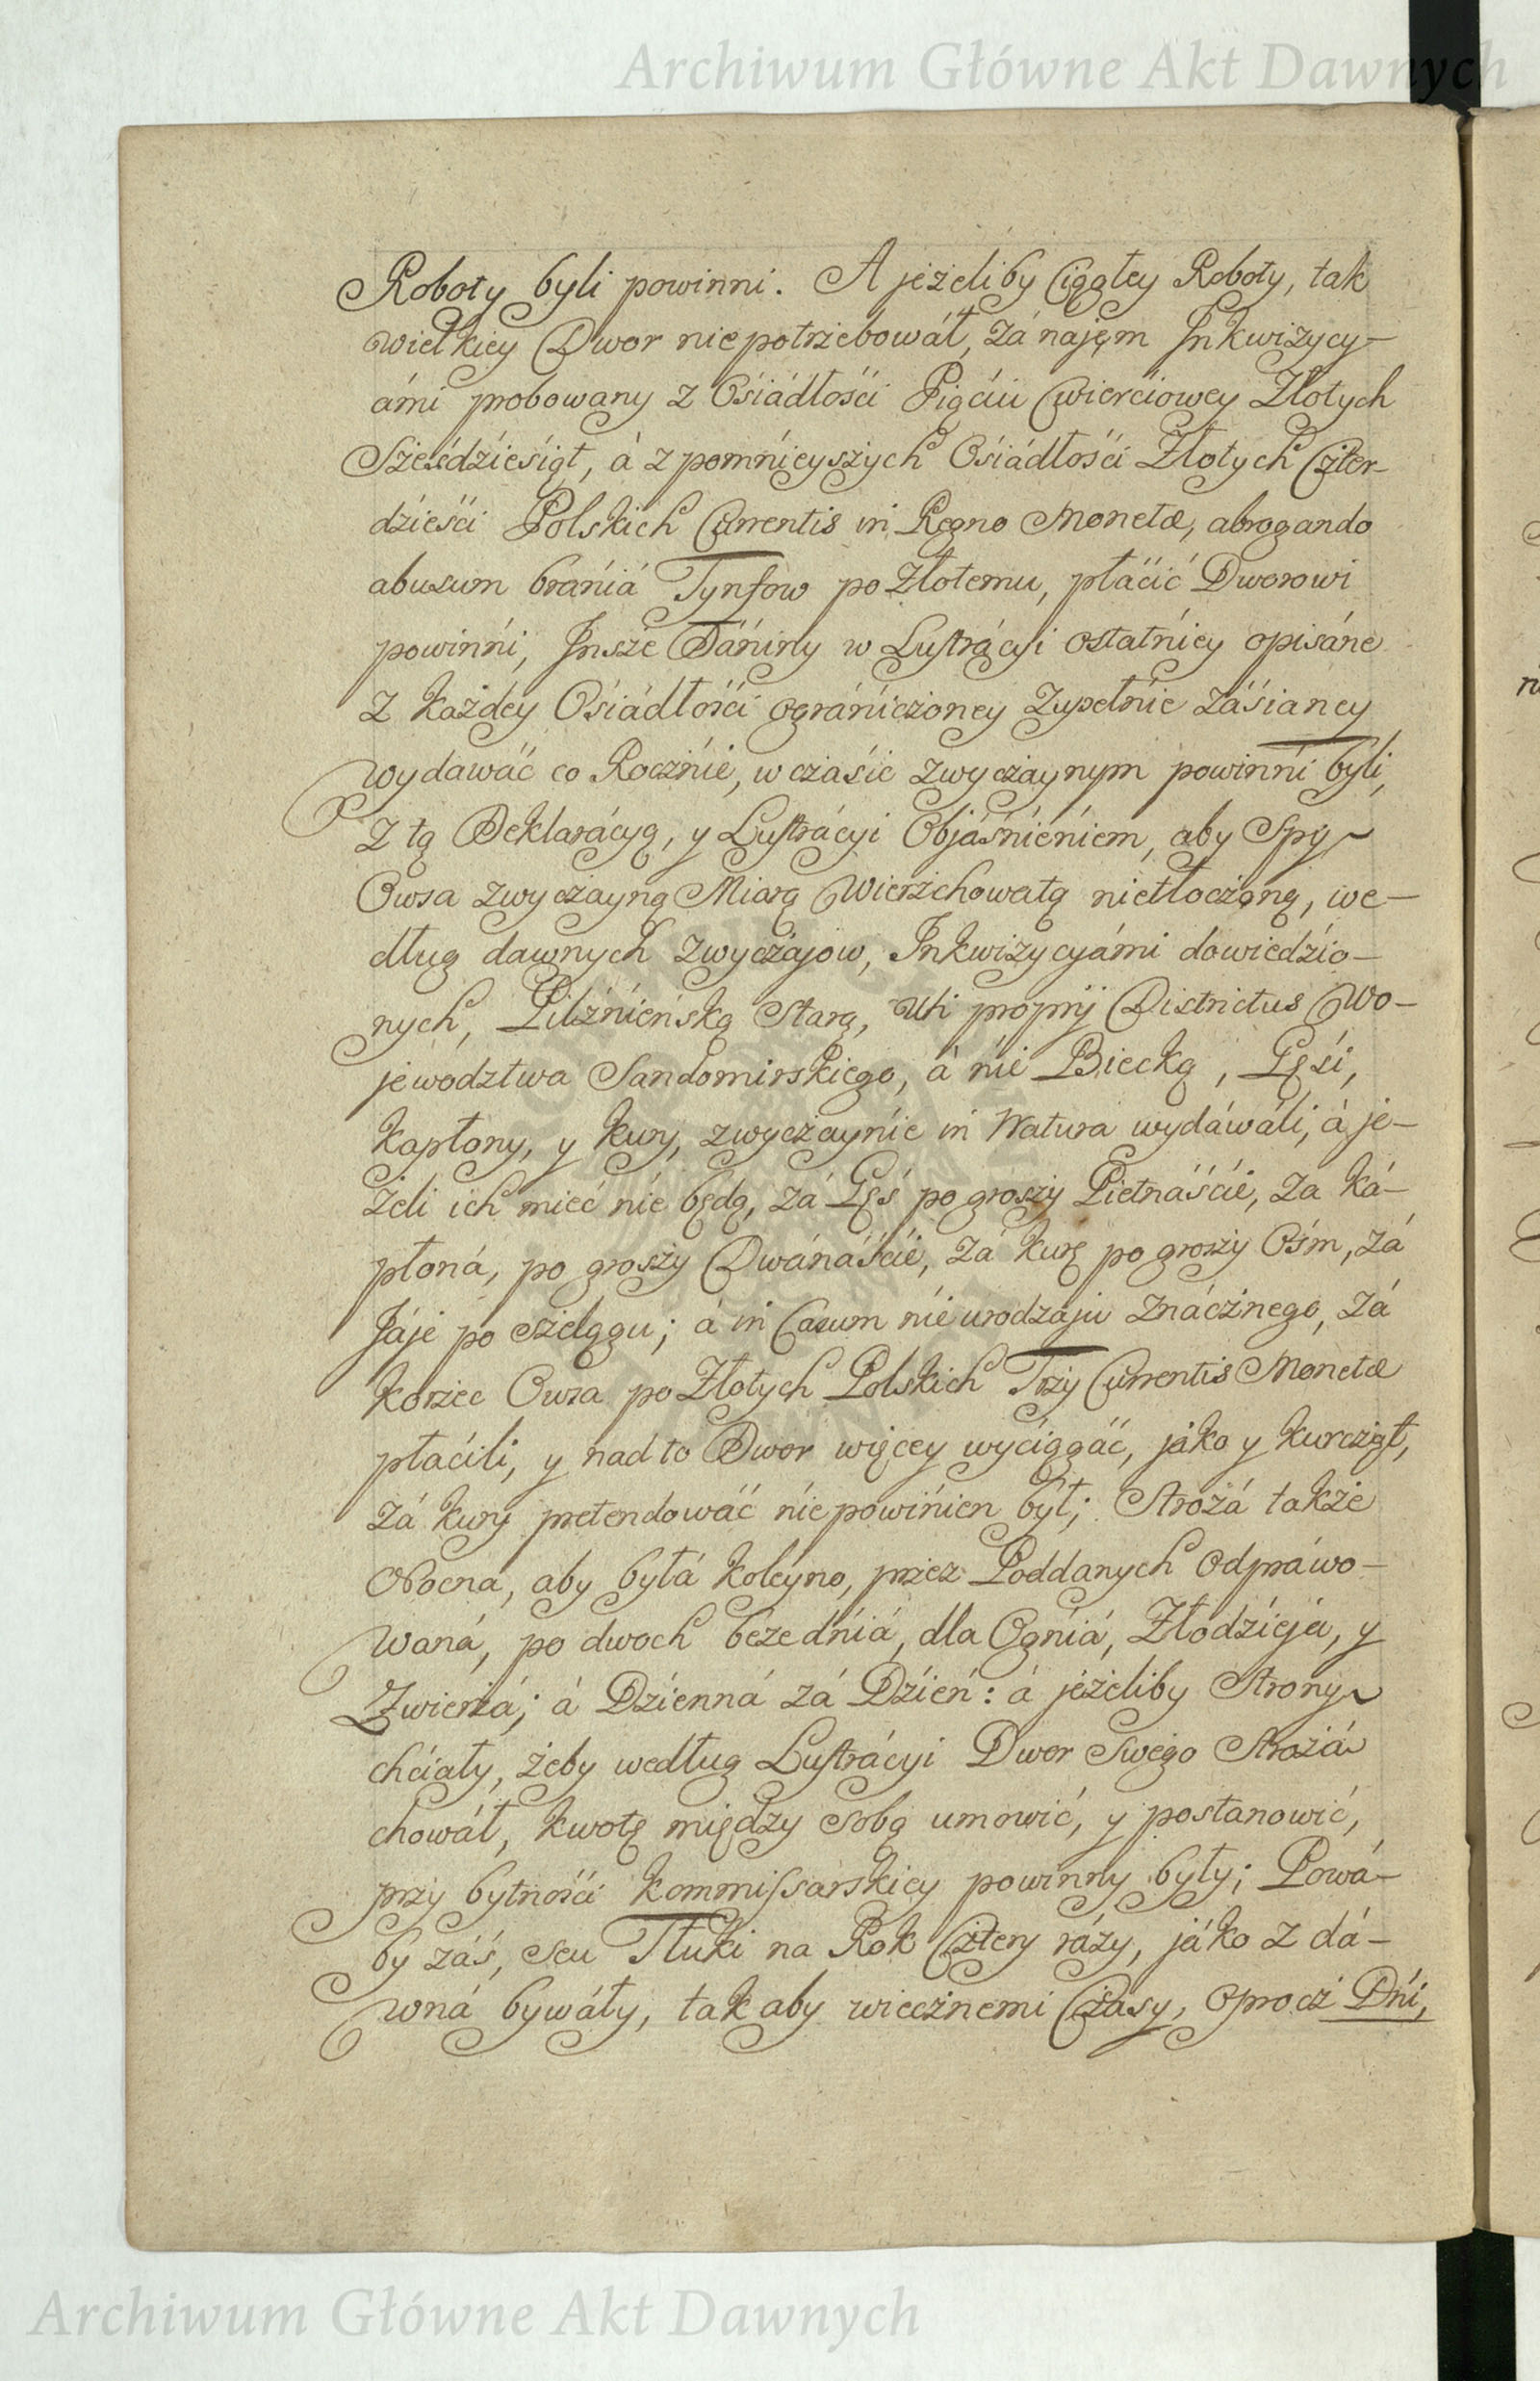 Archiwum Główne Akt Dawnych
Roboty byli powinni. A jeżeliby Ciągłey Roboty, tak
wielkiey Dwor niepotrzebowáł, zá nájęm Jnkwizycy-
ámi probowany z Ośiádłośći Pięćiu Cwierciowey Złotych
Sześćdźieśiąt, á z pomnieyszych Ośiádłośći Złotych Czter-
dźieśći Polskich Currentis in Regno Monetæ, abrogando
abusum brániá Tynfow po Złotemu, płáćić Dworowi
powinni, Jnsze Dániny w Lustrácyi ostatniey opisáne
z każdey Ośiádłośći ográniczoney zupełnie záśianey
wydawáć co Rocznie, w czáśie zwyczaynym powinni byli,
z tą Deklarácyą, y Lustrácyi Objáśnieniem, aby Spy
Owsa zwyczayną Miarą Wierzchowatą nietłoczoną, we-
dług dawnych zwyczajow, Jnkwizycyámi dowiedzio-
nych, Pilznieńską Starą, uti proprij Districtus Wo-
jewodztwa Sandomirskiego, á nie Biecką, Gęśi,
kapłony, y kury, zwyczaynie in Natura wydáwáli, á je-
żeli ich mieć nie będą, zá Gęś po groszy Pietnáśćie, za ká-
płoná, po groszy Dwánáśćie, zá kurę po groszy Ośm, zá
Jáje po szelągu; á in Casum nieurodzáju znácznego, zá
korzec Owsa po Złotych Polskich Trzy Currentis Monetæ
płaćili, y nad to Dwor więcey wyćiągáć, jáko y kurcząt,
zá kury pretendowáć niepowinien był; Strożá także
Nocna, aby byłá koleyno, przez Poddanych odpráwo-
waná, po dwoch beze dniá, dla Ogniá, Złodźieja, y
Zwierzá; á Dźienná zá Dźień: á jeżeliby Strony
chćiały, żeby według Lustrácyi Dwor Swego Strożá
chowáł, kwotę między sobą umowić, y postanowić,
przy bytnośći kommissarskiey powinny były; Powá-
by záś, seu Tłuki na Rok Cztery rázy, jáko z dá-
wná bywáły, tak aby wiecznemi Czasy, oprocz Dni,
Archiwum Główne Akt Dawnych